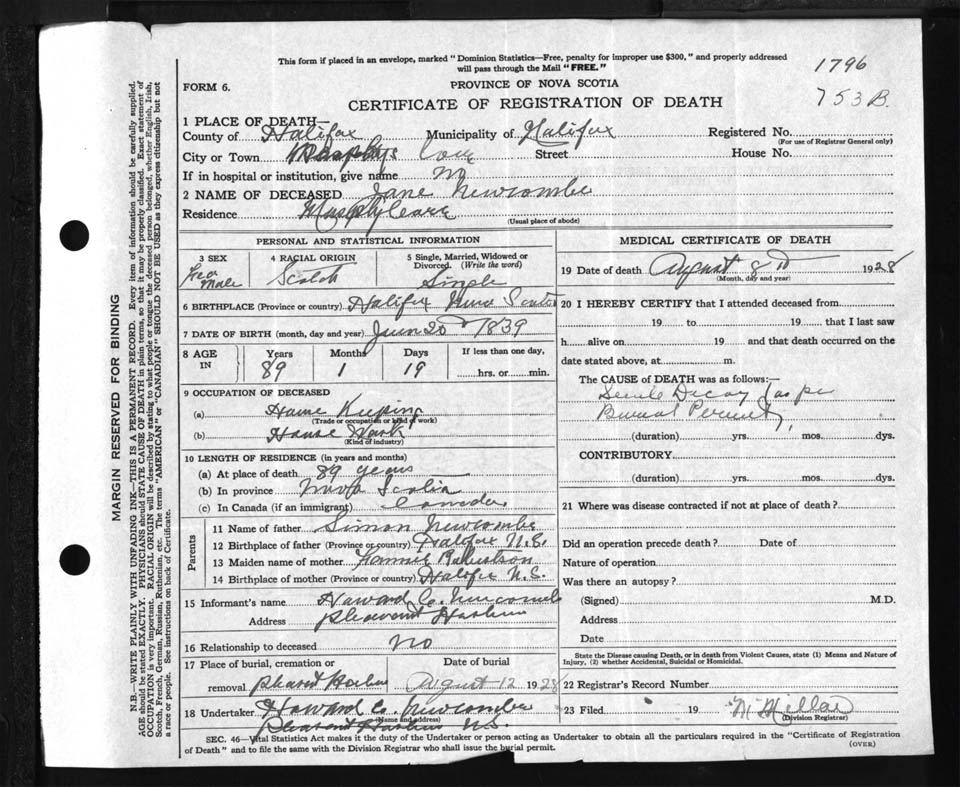 This form if placed in an envelope, marked "Dominion Statistics—Free, penalty for improper use $300," and properly addressed
will pass through the Mail "FREE."
1796
753 B.
FORM 6.
PROVINCE OF NOVA SCOTIA
CERTIFICATE OF REGISTRATION OF DEATH
1 PLACE OF DEATH—
County of Halifax Municipality of Halifax Registered No.
(For use of Registrar General only)
City or Town Murphys Cove Street House No.
If in hospital or institution, give name
2 NAME OF DECEASED Jane Newcombe
Residence Murphy
(Usual place of abode)
PERSONAL AND STATISTICAL INFORMATION
3 SEX
Fee
Male
4 RACIAL ORIGIN
Scotch
5 Single, Married, Widowed or
Divorced. (Write the word)
Single
6 BIRTHPLACE (Province or country) Halifax Nova Scotia
7 DATE OF BIRTH (month, day and year) June 20 1839
8 AGE
IN
Years Months Days If less than one day,
89 1 19 hrs. or min.
9 OCCUPATION OF DECEASED
(a) House Keeping
(Trade or occupation or kind of work)
(b) House Work
(Kind of industry)
10 LENGTH OF RESIDENCE (in years and months)
(a) At place of death 89 years
(b) In province Nova Scotia
(c) In Canada (if an immigrant) Canada
Parents
11 Name of father Simon Newcombe
12 Birthplace of father (Province or country) Halifax N.S.
13 Maiden name of mother Robertson
14 Birthplace of mother (Province or country) Halifx N.S.
15 Informant's name Howard C. Newcombe
Address Pleasent Harbor
16 Relationship to deceased No
17 Place of burial, cremation or
removal Harbor
Date of burial
August 12 1928
18 Undertaker Howard C. Newcombe
(Name and address)
Pleasant Harbor N.S.
MEDICAL CERTIFICATE OF DEATH
19 Date of death August 8 1928
(Month, day and year)
20 I HEREBY CERTIFY that I attended deceased from
19 to 19 that I last saw
h alive on 19 and that death occurred on the
date stated above, at m.
The CAUSE OF DEATH was as follows:—
Senile Decay
Burial Permit
(duration) yrs. mos. dys.
CONTRIBUTORY
(duration) yrs. mos. dys.
21 Where was disease contracted if not at place of death?
Did an operation precede death? Date of
Nature of operation
Was there an autopsy?
(Signed) M.D.
Address
Date
State the Disease causing Death, or in death from Violent Causes, state (1) Means and Nature of
Injury, (2) whether Accidental, Suicidal or Homicidal.
22 Registrar's Record Number
23 Filed 19 Millar
(Division Registrar)
SEC. 46—Vital Statistics Act makes it the duty of the Undertaker or person acting as Undertaker to obtain all the particulars required in the "Certificate of Registration
of Death" and to file the same with the Division Registrar who shall issue the burial permit.
(OVER)
MARGIN RESERVED FOR BINDING
N.B.—WRITE PLAINLY WITH UNFADING INK—THIS IS A PERMANENT RECORD. Every item of information should be carefully supplied.
AGE should be stated EXACTLY. PHYSICIANS should STATE CAUSE OF DEATH in plain terms, so that it may be properly classified. Exact statement of
OCCUPATION is very important. RACIAL ORIGIN will be described by stating to what people or tongue the deceased person belonged, whether English, Irish,
Scotch, French, German, Russian, Ruthenian, etc. The terms "AMERICAN" or "CANADIAN" SHOULD NOT BE USED as they express citizenship but not
a race or people. See instructions on back of Certificate.